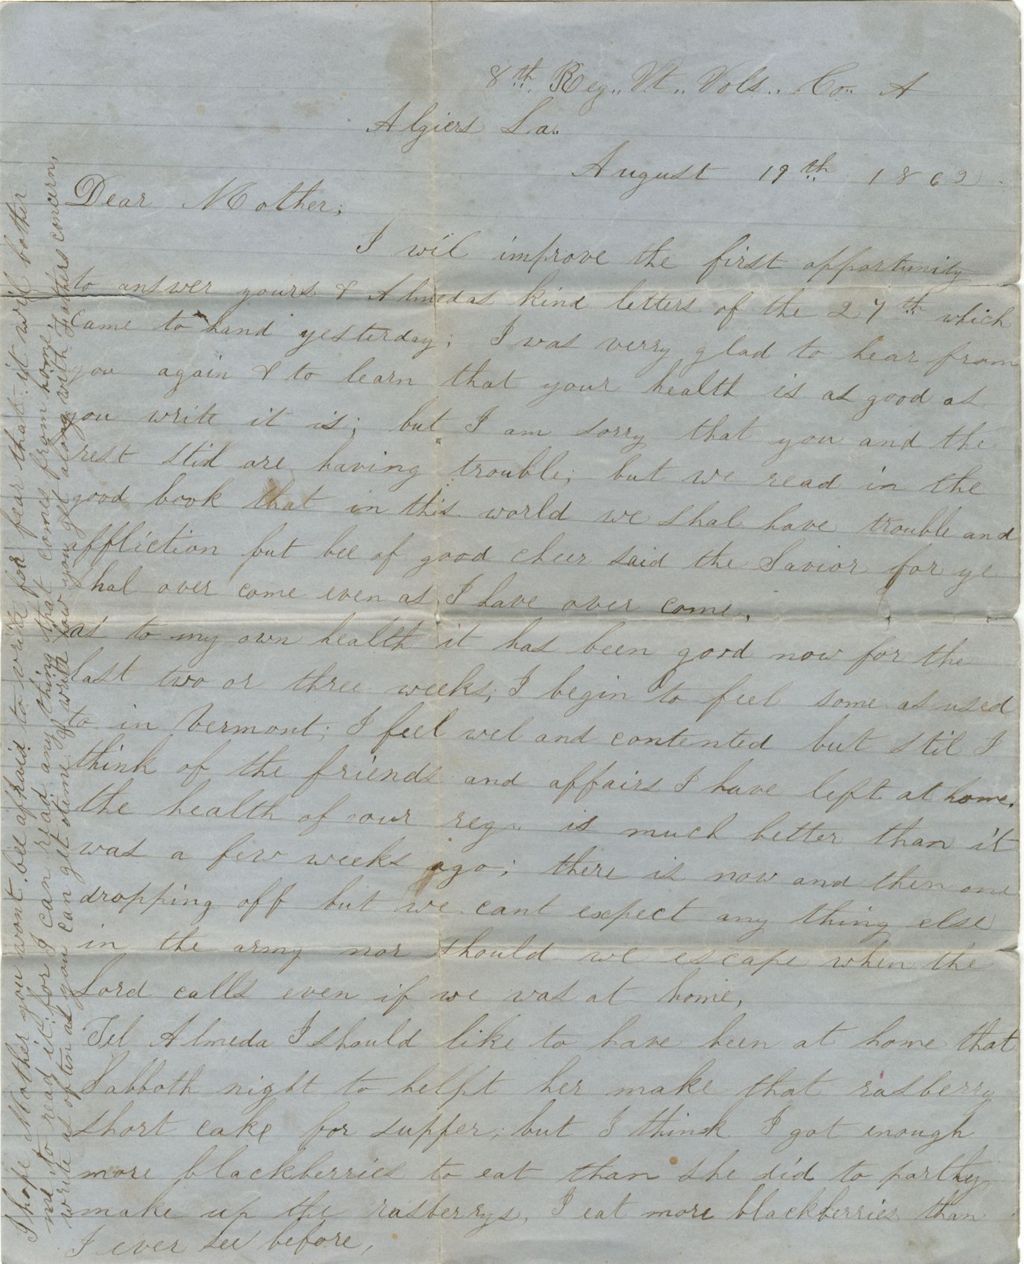 8th Reg.. Vt.. Vols.. Co.. A
Algiers La..
August 19th 1862.
Dear Mother;
I wil improve the first opportunity
to answer yours & Almedas kind letters of the 27th which
came to hand yesterday; I was verry glad to hear from
you again & to learn that your health is as good as
you write it is; but I am sorry that you and the
rest stil are having trouble; but we read in the
good book that in this world we shal have trouble and
affliction but bee of good cheer said the Savior for ye
shal over come even as I have over come.
as to my own health it has been good now for the
last two or three weeks; I begin to feel some as used
to in Vermont; I feel wel and contented but stil I
think of the friends and affairs I have left at home.
the health of our reg. is much better than it
was a few weeks ago; there is now and then one
dropping off but we cant expect any thing else
in the army nor should we escape when the
Lord calls even if we was at home,
Tel Almeda I should like to have been at home that
Sabboth night to helpt her make that rasberry
short cake for supper; but I think I got enough
more blackberries to eat than she did to parthy
make up the rasberrys, I eat more blackberries than
I ever see before,
I hope Mother you wont bee afraid to write for fear that it wil bother
me to read it; for I can read any thing that comes from home;
write as often as you can get time & write how you get along with Fathers concern,